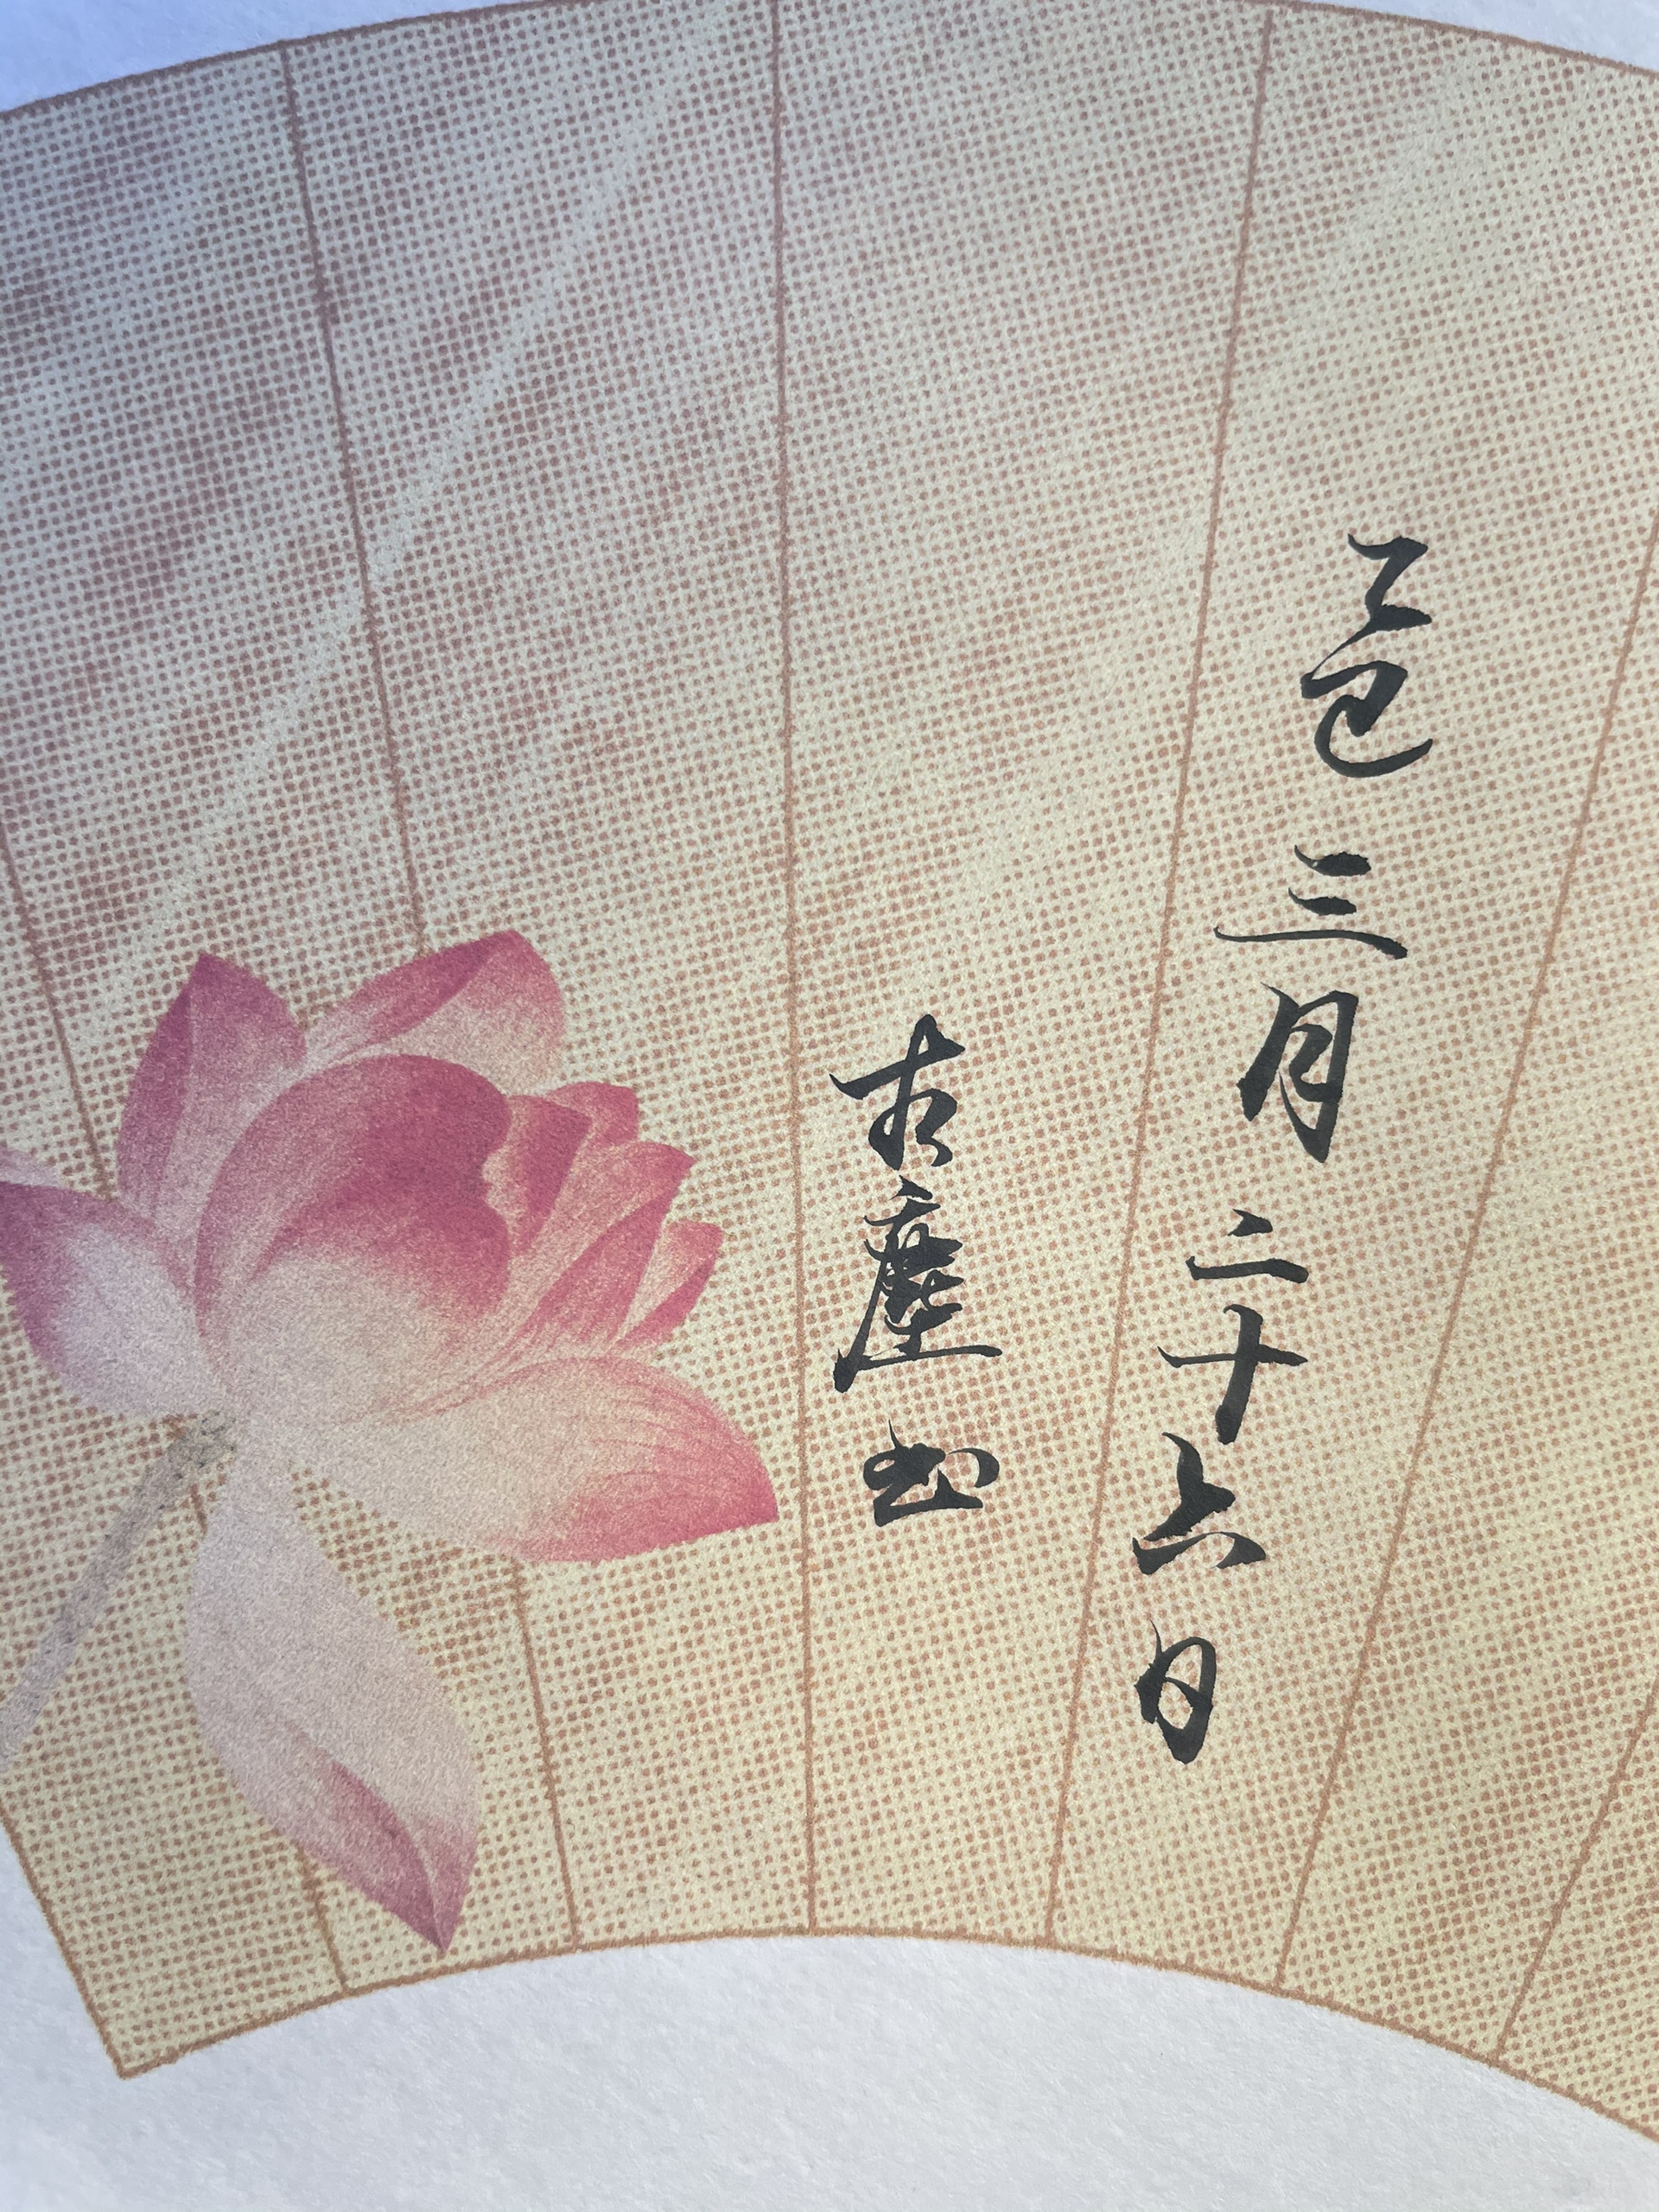 乙巳三月二十六日
古塵书